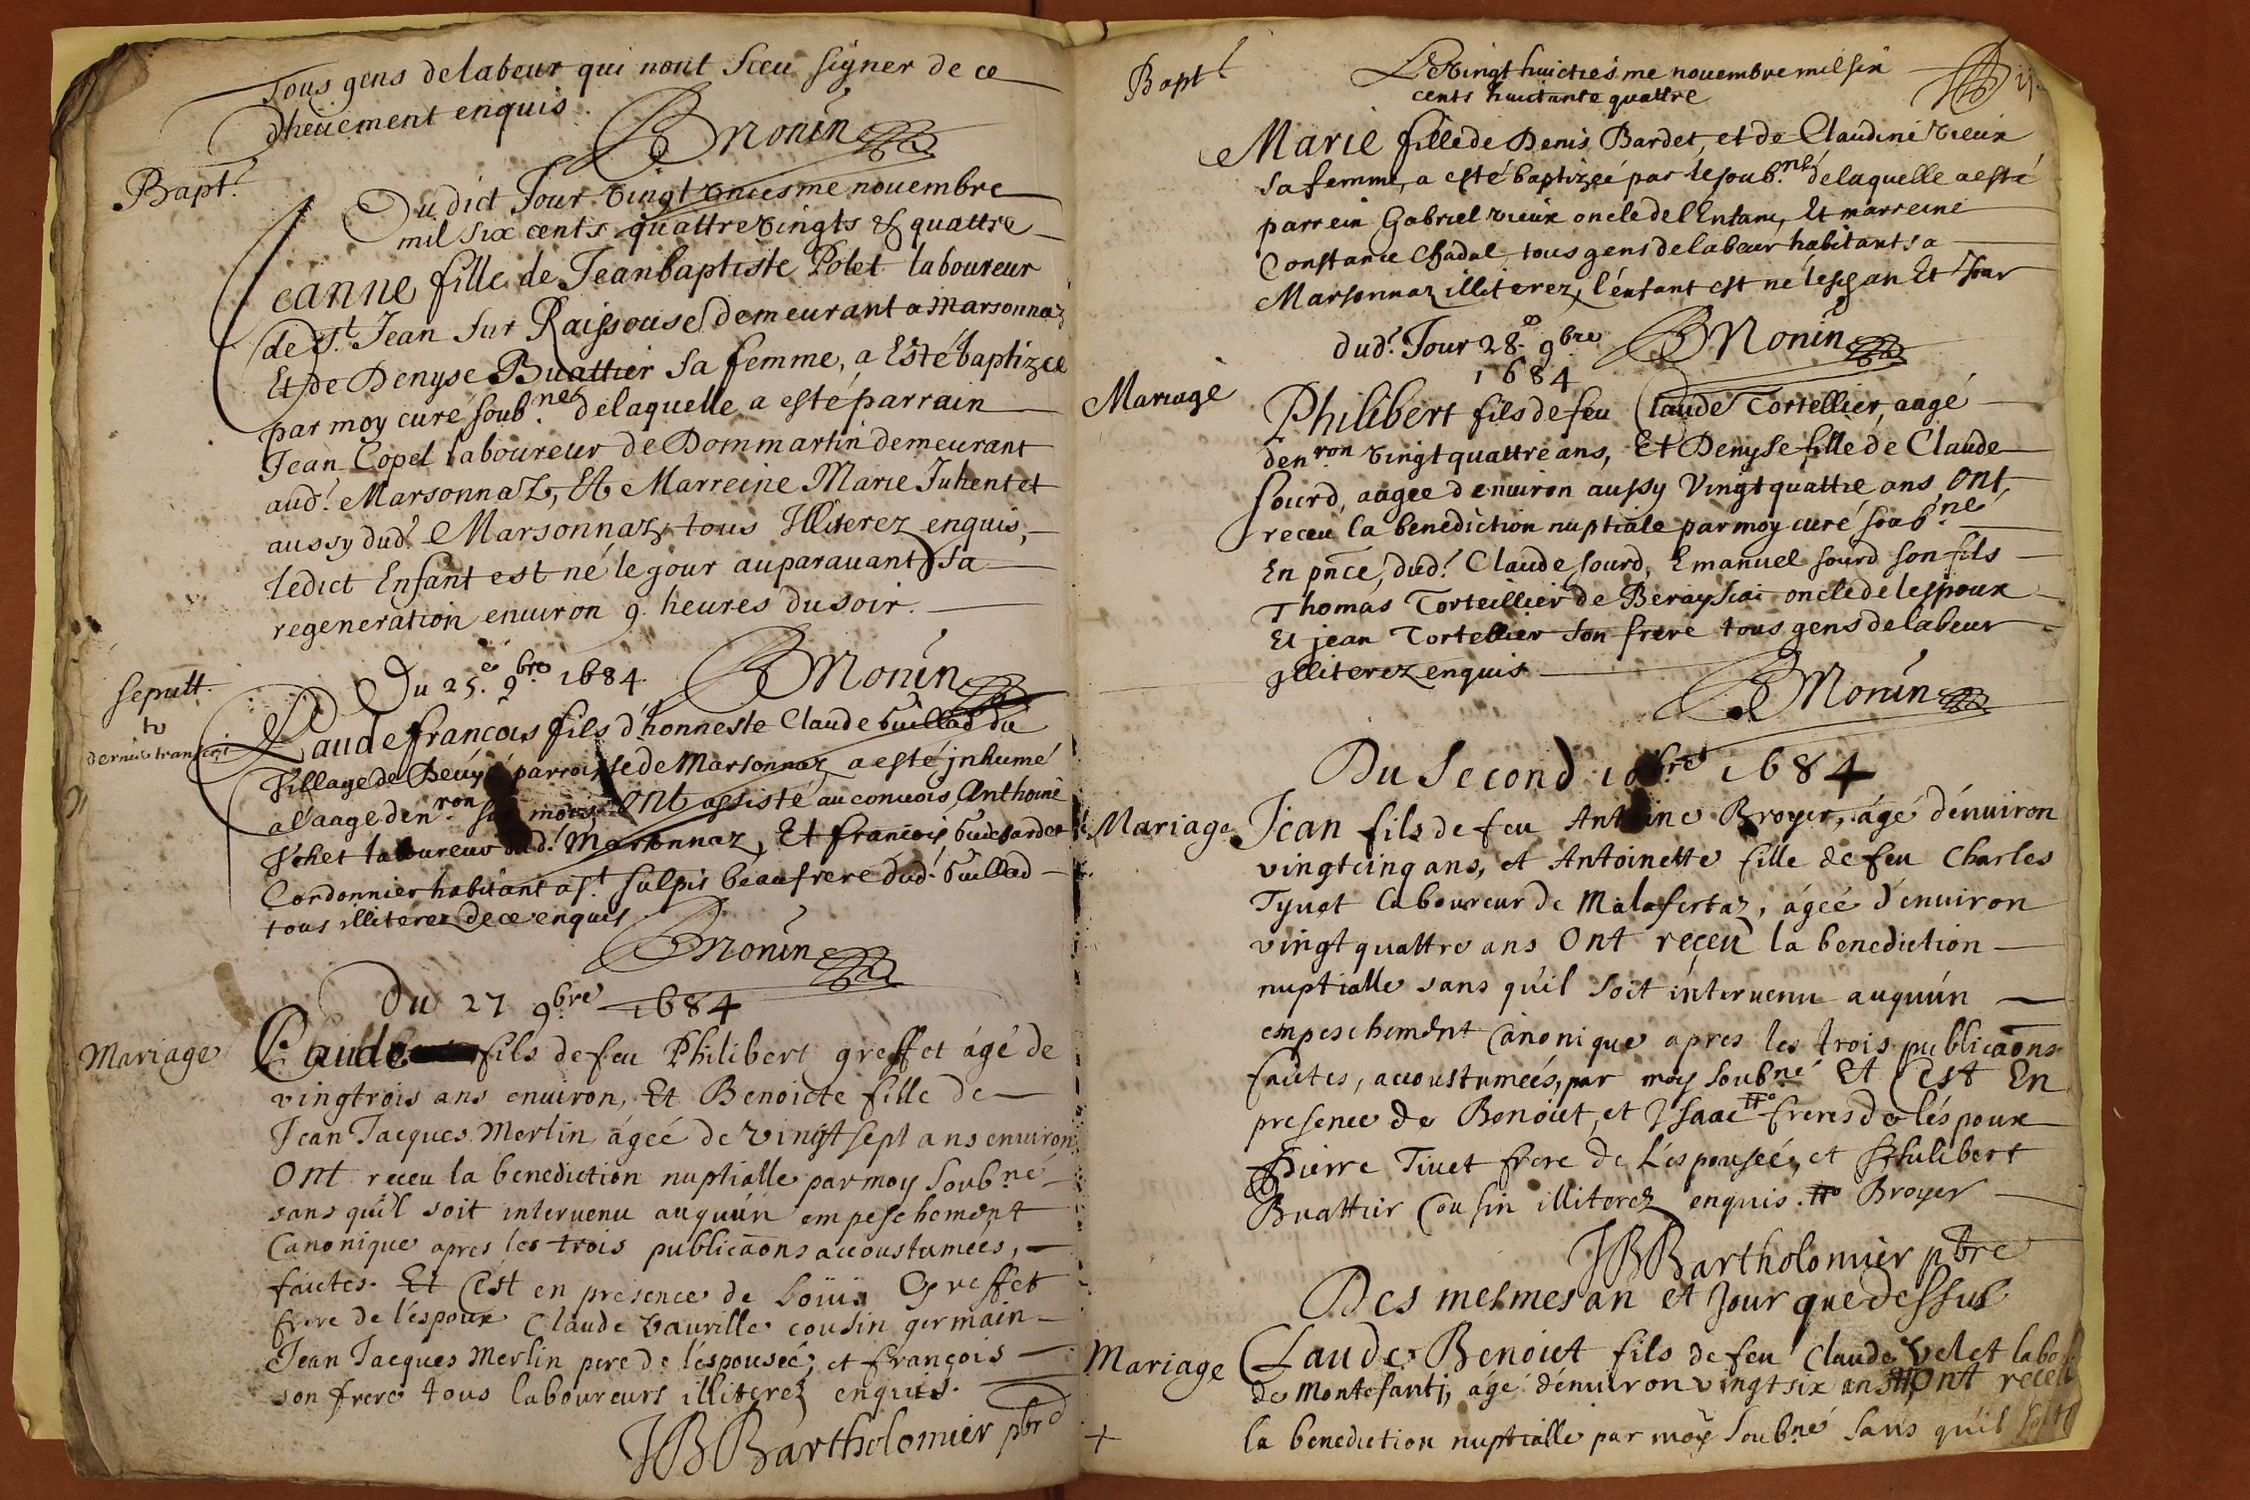 Tous gens de labeur qui nont sceu signer de ce
dheuement enquis.
BMonin
Bapt.t
Du dict Jour vingt unciesme nouembre
mil six cents quattre vingts & quattre
Jeanne fille de Jeanbaptiste Polet laboureur
de S.t Jean sur Raissouse demeurant a Marsonnaz
Et de Denyse Buattier sa femme, a Esté baptizée
par moy curé soub.né de laquelle a esté parrain
Jean Copel laboureur de Dommartin demeurant
aud.t Marsonnaz, Et Marreine Marie Juhentet
aussy dud.t Marsonnaz, tous Illiterez enquis,
ledict Enfant est né le jour auparauant sa
regeneration enuiron 9 heures du soir.
BMonin
Sepult.
Du 25.e 9.bre 1684
dernier transcrit
Claude francois fils d'honneste Claude Guillad du
Village de parroisse de Marsonnaz a esté jnhumé
a l'aage den.ron mois, ONt assisté au conuois Anthoine
laboureur dud.t Marsonnaz, Et francois Guichardet
Cordonnier habitant a S.t Sulpis beaufrere dud.t Guillad
tous illiterez de ce enquis
BMonin
Du 27 9.bre 1684
Mariage
Claude fils de feu Philibert greffet ágé de
vingtrois ans enuiron, Et Benoicte fille de
Jean Jacques Merlin ágéé de vingt sept ans enuiron
Ont receu la benediction nuptialle par moy soub.né
sans qu'il soit interuenu auquún empeschement
Canonique apres les trois publicaons accoustumees,
faictes. Et C'est en presence de Loüis Greffet
frere de l'éspoux Claude vauville cousin germain
Jean Jacques Merlin pere de l'éspouséé, et françois
son frere tous laboureurs illiterez enquis.
JBBartholomier pbre
Bapt.t
Le Vingt huictiesme nouembre mil six
cents huictante quattre
Marie fille de Denis Bardet, et de Claudine Vieux
sa femme, a esté baptizéé par le soub.né de laquelle a esté
parrein Gabriel vieux oncle de l'Enfant, Et marreine
Constance Chadal, tous gens de labeur habitants a
Marsonnaz illiterez, l'énfant est né lesd. an Et Jour
BMonin
dud.t Jour 28.e 9.bre
1684
Mariage
Philibert fils de feu Claude Tortellier, aagé
den.ron vingt quattre ans, Et Denyse fille de Claude
Sourd, aagee denuiron aussy Vingt quattre ans ONt
receu la benediction nuptiale par moy curé soub.né
En pnce, dud.t Claude sourd, Emanuel sourd son fils
Thomas Torteillier de oncle de lespoux
Et jean Tortellier son frere tous gens de labeur
Illiterez enquis
BMonin
Du Second 10bre 1684
Mariage
Jean fils de feu Antoine Broyer, ágé dénuiron
vingtcinq ans, et Antoinette fille de feu Charles
Tyuet laboureur de Malafertaz, ágéé d'énuiron
vingt quattre ans Ont receu la benediction
nuptialle sans qu'il soit interuenu auquún
empeschement Canonique apres les trois publicaons
faictes, accoustumeés, par moy soub.né Et C'est En
presence de Benoict, et Isaac # freres de léspoux
Pierre Tiuet frere de L'éspouséé, et Philibert
Buattier Cousin illiterez enquis. # Broyer
JBBartholomier pbre
Des mesmes an et Jour que dessus
Mariage
Claude Benoict fils de feu Claude Velet labo
de Montefanti, ágé dénuiron vingt six ans # Ont receu
+
la benediction nuptialle par moy soub.né sans qu'il soit